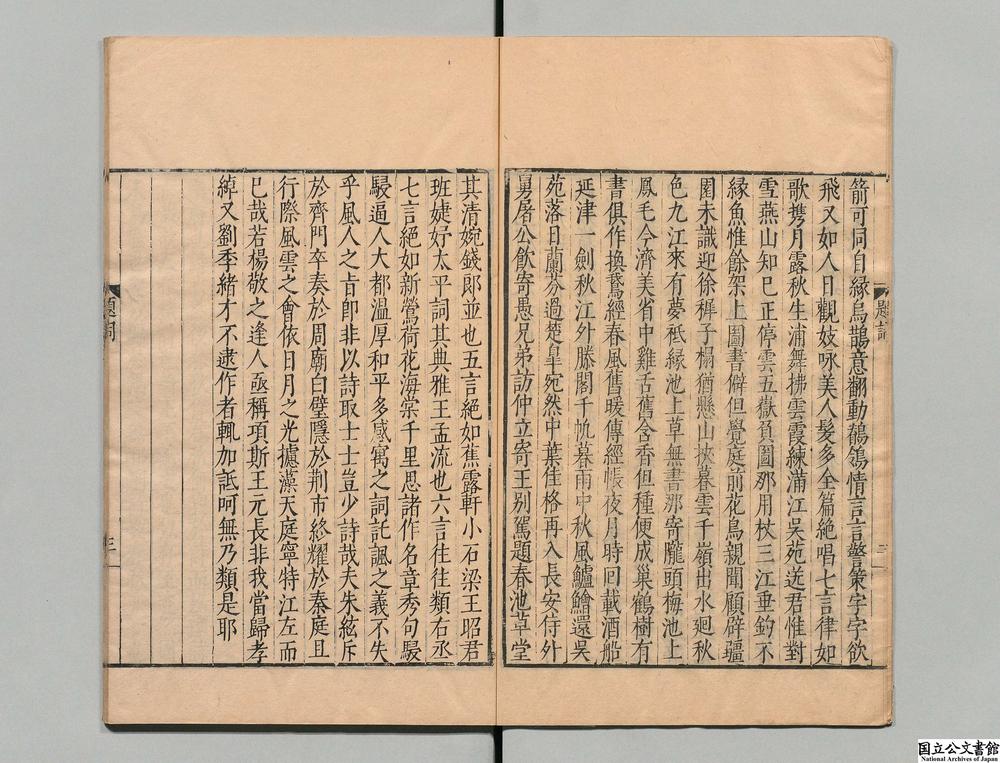 箭可同自緣烏鵲意翻動鶺鴒情言言警策字字欲
飛又如人日觀妓咏美人髮多全篇絕唱七言律如
歌携月露秋生浦舞拂雲霞練滿江吳苑送君惟對
雪燕山知已正停雲五嶽負圖那用杖三江垂釣不
緣魚惟餘架上圖書僻但覺庭前花鳥親聞顧辟疆
園未識迎徐穉子榻猶懸山挾暮雲千嶺出水廻秋
色九江來有夢秪緣池上草無書那寄隴頭梅池上
鳳毛今濟美省中雞舌舊含香但種便成巢鶴樹有
書俱作換鵞經春風舊暖傳經帳夜月時回載酒船
延津一劍秋江外滕閣千帆暮雨中秋風鱸鱠還吳
苑落日蘭芬過楚皐宛然中葉佳格再入長安侍外
舅屠公飲寄愚兄弟訪仲立寄王别駕題春池草堂
其清婉錢郎並也五言絕如蕉露軒小石梁王昭君
班婕妤太平詞其典雅王孟流也六言往往類右丞
七言絕如新鶯荷花海棠千里思諸作名章秀句駸
駸逼人大都溫厚和平多感寓之詞託諷之義不失
乎風人之旨卽非以詩取士士豈少詩哉夫朱絃斥
於齊門卒奏於周廟白璧隱於荆市終耀於秦庭且
行際風雲之會依日月之光攄藻天庭寧特江左而
已哉若楊敬之逢人亟稱項斯王元長非我當歸孝
綽又劉季緒才不逮作者輒加詆呵無乃類是耶
題詞
三
題詞
三
国立公文書館
National Archives of Japan